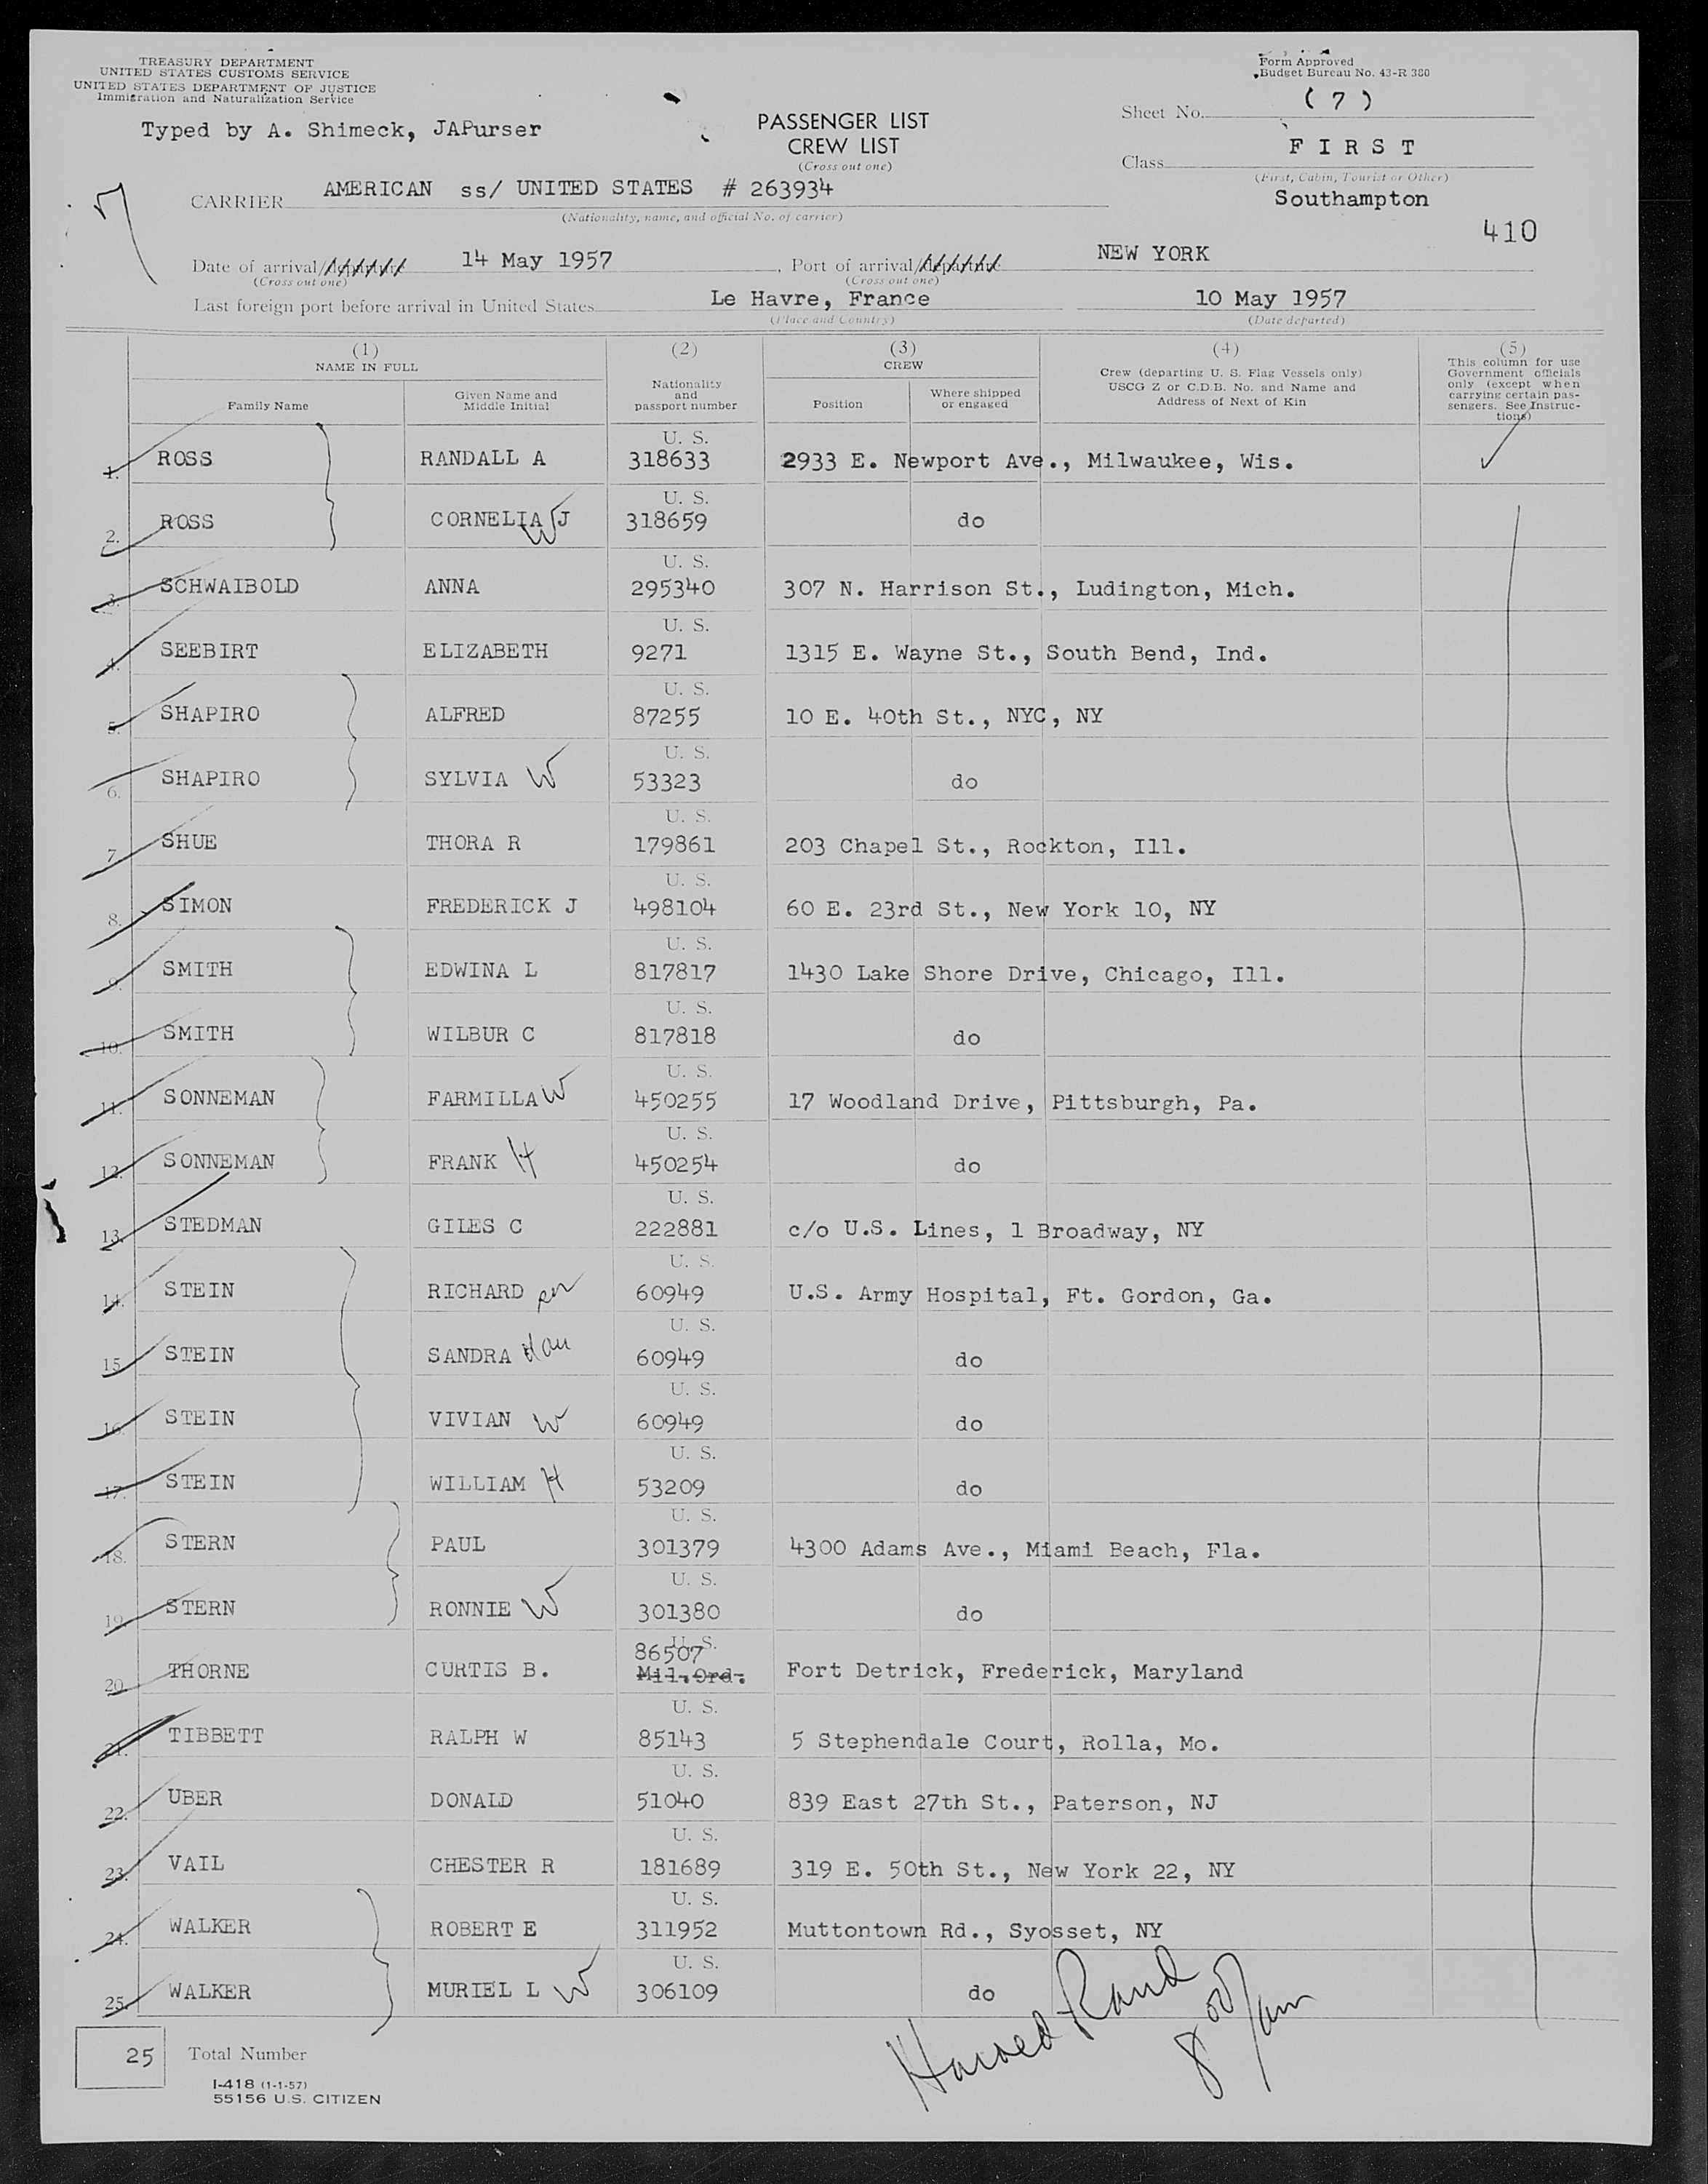 TREASURY DEPARTMENT
UNITED STATES CUSTOMS SERVICE
UNITED STATES DEPARTMENT OF JUSTICE
Immigration and Naturalization Service
Form Approved
Budget Bureau No. 43-R 380
Typed by A. Shimeck, JAPurser
PASSENGER LIST
CREW LIST
(Cross out one)
Sheet No. (7)
Class FIRST
(First, Cabin, Tourist or Other)
CARRIER AMERICAN ss/ UNITED STATES # 263934
(Nationality, name, and official No. of carrier)
Southampton
410
Date of arrival/departure 14 May 1957, Port of arrival/departure NEW YORK
(Cross out one) (Cross out one)
Last foreign port before arrival in United States Le Havre, France 10 May 1957
(Place and Country) (Date departed)
(1) NAME IN FULL
Family Name
Given Name and Middle Initial
(2)
Nationality and passport number
(3) CREW
Position
Where shipped or engaged
(4)
Crew (departing U. S. Flag Vessels only)
USCG Z or C.D.B. No. and Name and
Address of Next of Kin
(5)
This column for use
Government officials
only (except when
carrying certain pas-
sengers. See Instruc-
tions)
1. ROSS RANDALL A U. S. 318633 2933 E. Newport Ave., Milwaukee, Wis.
2. ROSS CORNELIA J W U. S. 318659 do
3. SCHWAIBOLD ANNA U. S. 295340 307 N. Harrison St., Ludington, Mich.
4. SEEBIRT ELIZABETH U. S. 9271 1315 E. Wayne St., South Bend, Ind.
5. SHAPIRO ALFRED U. S. 87255 10 E. 40th St., NYC, NY
6. SHAPIRO SYLVIA W U. S. 53323 do
7. SHUE THORA R U. S. 179861 203 Chapel St., Rockton, Ill.
8. SIMON FREDERICK J U. S. 498104 60 E. 23rd St., New York 10, NY
9. SMITH EDWINA L U. S. 817817 1430 Lake Shore Drive, Chicago, Ill.
10. SMITH WILBUR C U. S. 817818 do
11. SONNEMAN FARMILLA W U. S. 450255 17 Woodland Drive, Pittsburgh, Pa.
12. SONNEMAN FRANK H U. S. 450254 do
13. STEDMAN GILES C U. S. 222881 c/o U.S. Lines, 1 Broadway, NY
14. STEIN RICHARD U. S. 60949 U.S. Army Hospital, Ft. Gordon, Ga.
15. STEIN SANDRA dau U. S. 60949 do
16. STEIN VIVIAN W U. S. 60949 do
17. STEIN WILLIAM H U. S. 53209 do
18. STERN PAUL U. S. 301379 4300 Adams Ave., Miami Beach, Fla.
19. STERN RONNIE W U. S. 301380 do
20. THORNE CURTIS B. U. S. 86507 Mil.Ord. Fort Detrick, Frederick, Maryland
21. TIBBETT RALPH W U. S. 85143 5 Stephendale Court, Rolla, Mo.
22. UBER DONALD U. S. 51040 839 East 27th St., Paterson, NJ
23. VAIL CHESTER R U. S. 181689 319 E. 50th St., New York 22, NY
24. WALKER ROBERT E U. S. 311952 Muttontown Rd., Syosset, NY
25. WALKER MURIEL L W U. S. 306109 do
Rand
8 00/am
25 Total Number
I-418 (1-1-57)
55156 U.S. CITIZEN